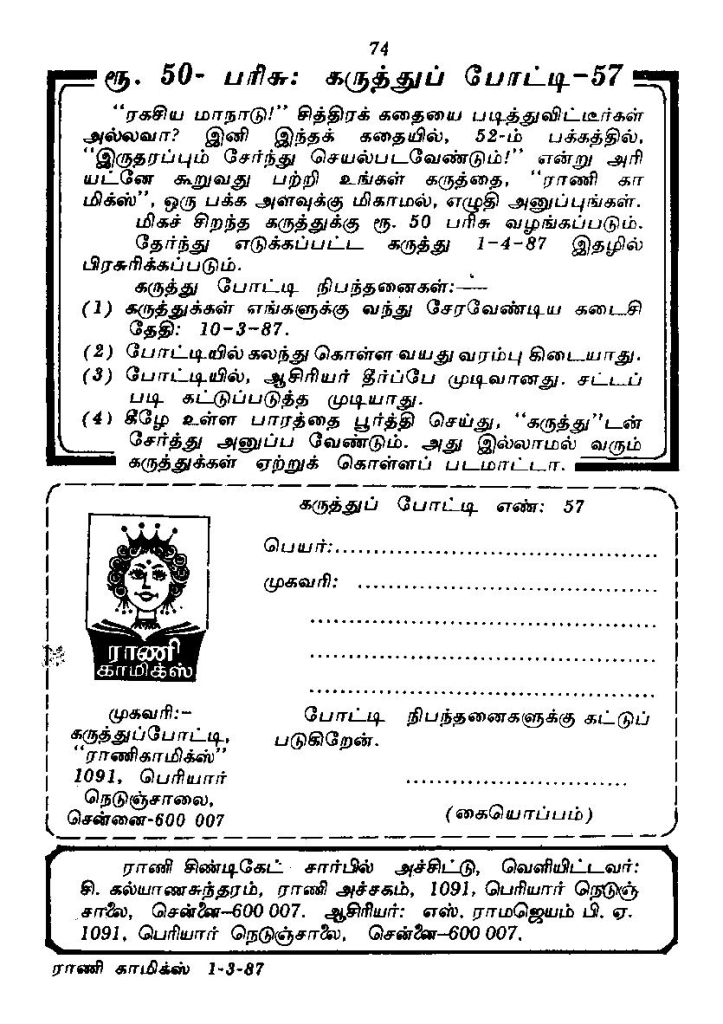 74
ரூ. 50- பரிசு: கருத்துப் போட்டி-57
"ரகசிய மாநாடு!" சித்திரக் கதையை படித்துவிட்டீர்கள்
அல்லவா? இனி இந்தக் கதையில், 52-ம் பக்கத்தில்,
"இருதரப்பும் சேர்ந்து செயல்படவேண்டும்!" என்று அரி
யட்னே கூறுவது பற்றி உங்கள் கருத்தை, "ராணி கா
மிக்ஸ்", ஒரு பக்க அளவுக்கு மிகாமல், எழுதி அனுப்புங்கள்.
மிகச் சிறந்த கருத்துக்கு ரூ. 50 பரிசு வழங்கப்படும்.
தேர்ந்து எடுக்கப்பட்ட கருத்து 1-4-87 இதழில்
பிரசுரிக்கப்படும்.
கருத்து போட்டி நிபந்தனைகள்:—
(1) கருத்துக்கள் எங்களுக்கு வந்து சேரவேண்டிய கடைசி
தேதி: 10-3-87.
(2) போட்டியில் கலந்து கொள்ள வயது வரம்பு கிடையாது.
(3) போட்டியில், ஆசிரியர் தீர்ப்பே முடிவானது. சட்டப்
படி கட்டுப்படுத்த முடியாது.
(4) கீழே உள்ள பாரத்தை பூர்த்தி செய்து, "கருத்து"டன்
சேர்த்து அனுப்ப வேண்டும். அது இல்லாமல் வரும்
கருத்துக்கள் ஏற்றுக் கொள்ளப் படமாட்டா.
கருத்துப் போட்டி எண்: 57
பெயர்:..........................................
முகவரி: ........................................
ராணி
காமிக்ஸ்
முகவரி:-
கருத்துப்போட்டி,
"ராணிகாமிக்ஸ்"
1091, பெரியார்
நெடுஞ்சாலை,
சென்னை-600 007
போட்டி நிபந்தனைகளுக்கு கட்டுப்
படுகிறேன்.
..............................
(கையொப்பம்)
ராணி சிண்டிகேட் சார்பில் அச்சிட்டு, வெளியிட்டவர்:
சி. கல்யாணசுந்தரம், ராணி அச்சகம், 1091, பெரியார் நெடுஞ்
சாலை, சென்னை—600 007. ஆசிரியர்: எஸ். ராமஜெயம் பி. ஏ.
1091, பெரியார் நெடுஞ்சாலை, சென்னை—600 007.
ராணி காமிக்ஸ் 1-3-87